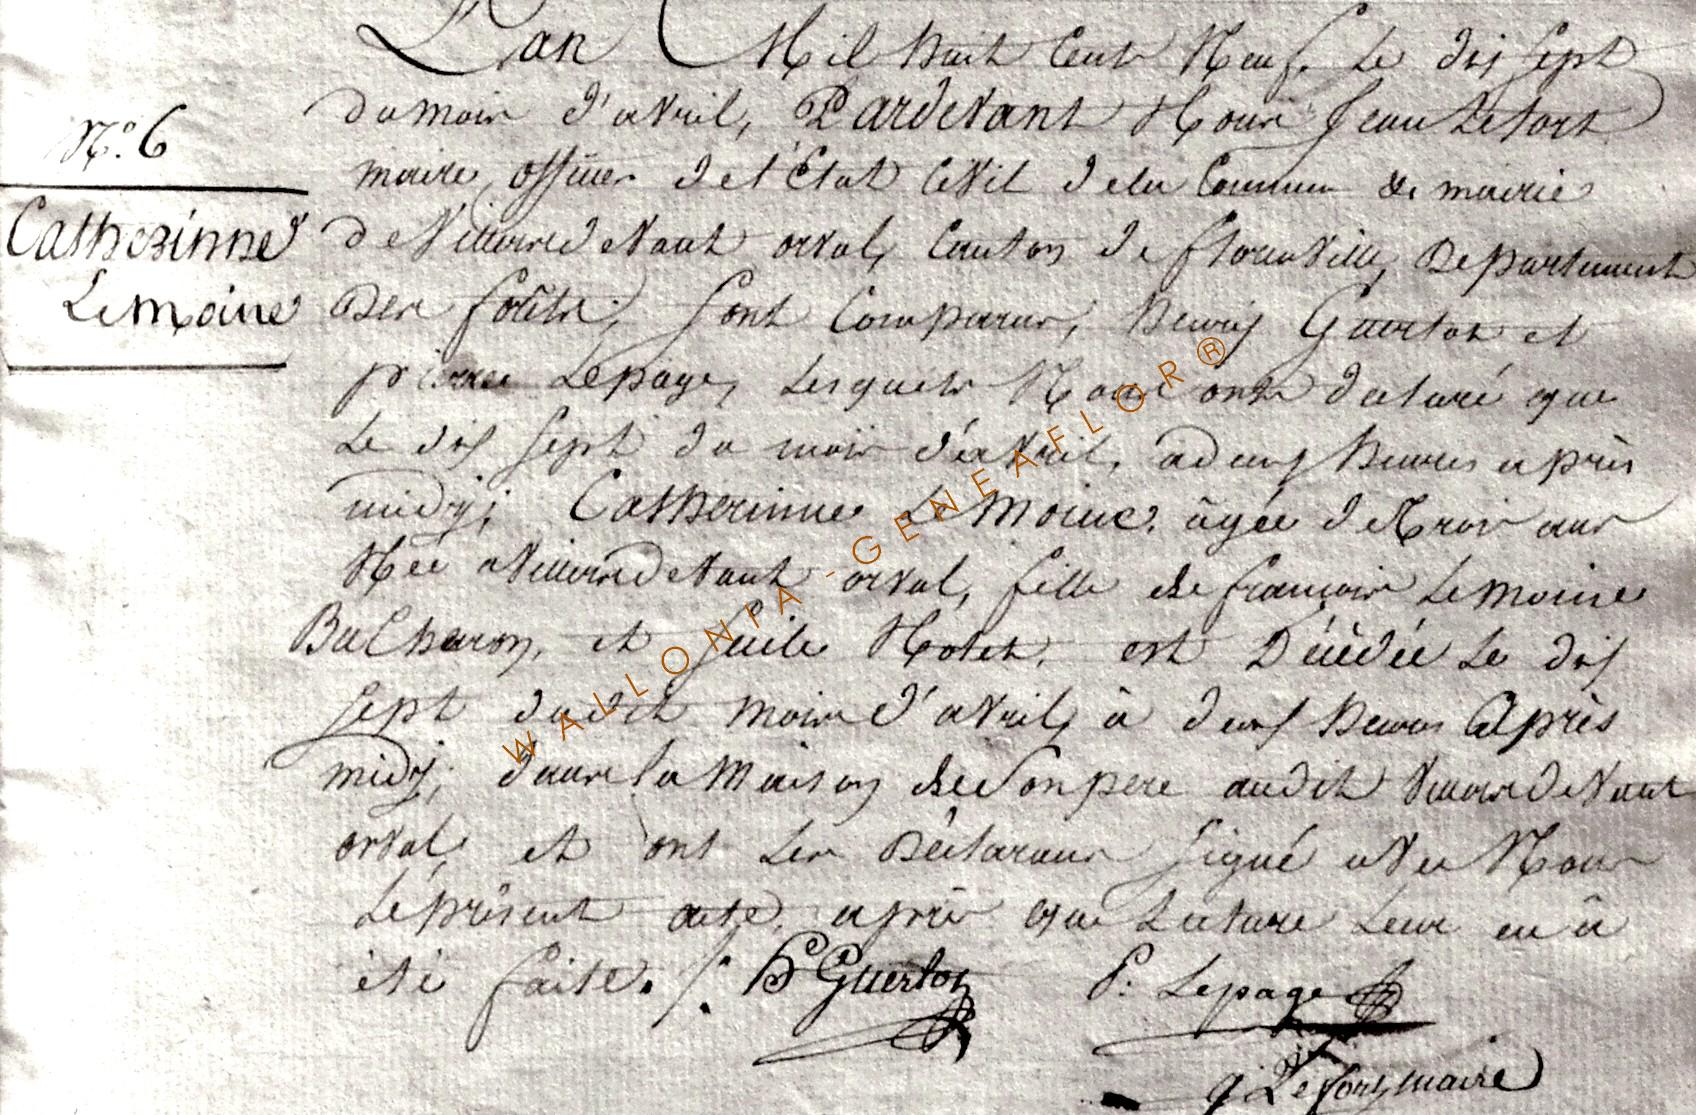 L'an Mil huit Cent Neuf. Le dix Sept
du mois d'avril, Pardevant Nous Jean Lefort
N.o 6
maire, officier de l'État Civil de la Commune & mairie
Catherinne
de Villers devant orval, Canton de florenville, Departement
Lemoine
Des forêts; sont Comparus, henry Guerlot et
pierre Lepage, Lesquels Nous ont declaré que
Le dix sept du mois d'avril, a deux heures après
midy; Catherinne Le Moine, âgée de trois ans
Née a Villers devant orval, fille de françois Le moine
Bucheron, et Cecile Notet, est Décédée Le dix
sept dudit mois d'avril, à deux heures Après
midy; dans la Maison de Son pere audit Villers deVant
orval, et ont Les Déclarans signé avec Nous
Le présent acte, après que Lecture Leur en a
été faite. /. h Guerlot P. Lepage
Lefort, maire
WALLONIA - GENEAFLOR®